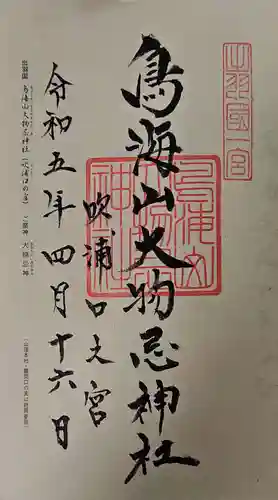 出羽國一宮
鳥海山大物忌神社
吹浦口之宮
令和五年四月十六日
出羽国 鳥海山大物忌神社(吹浦口の宮) ご祭神 大物忌神